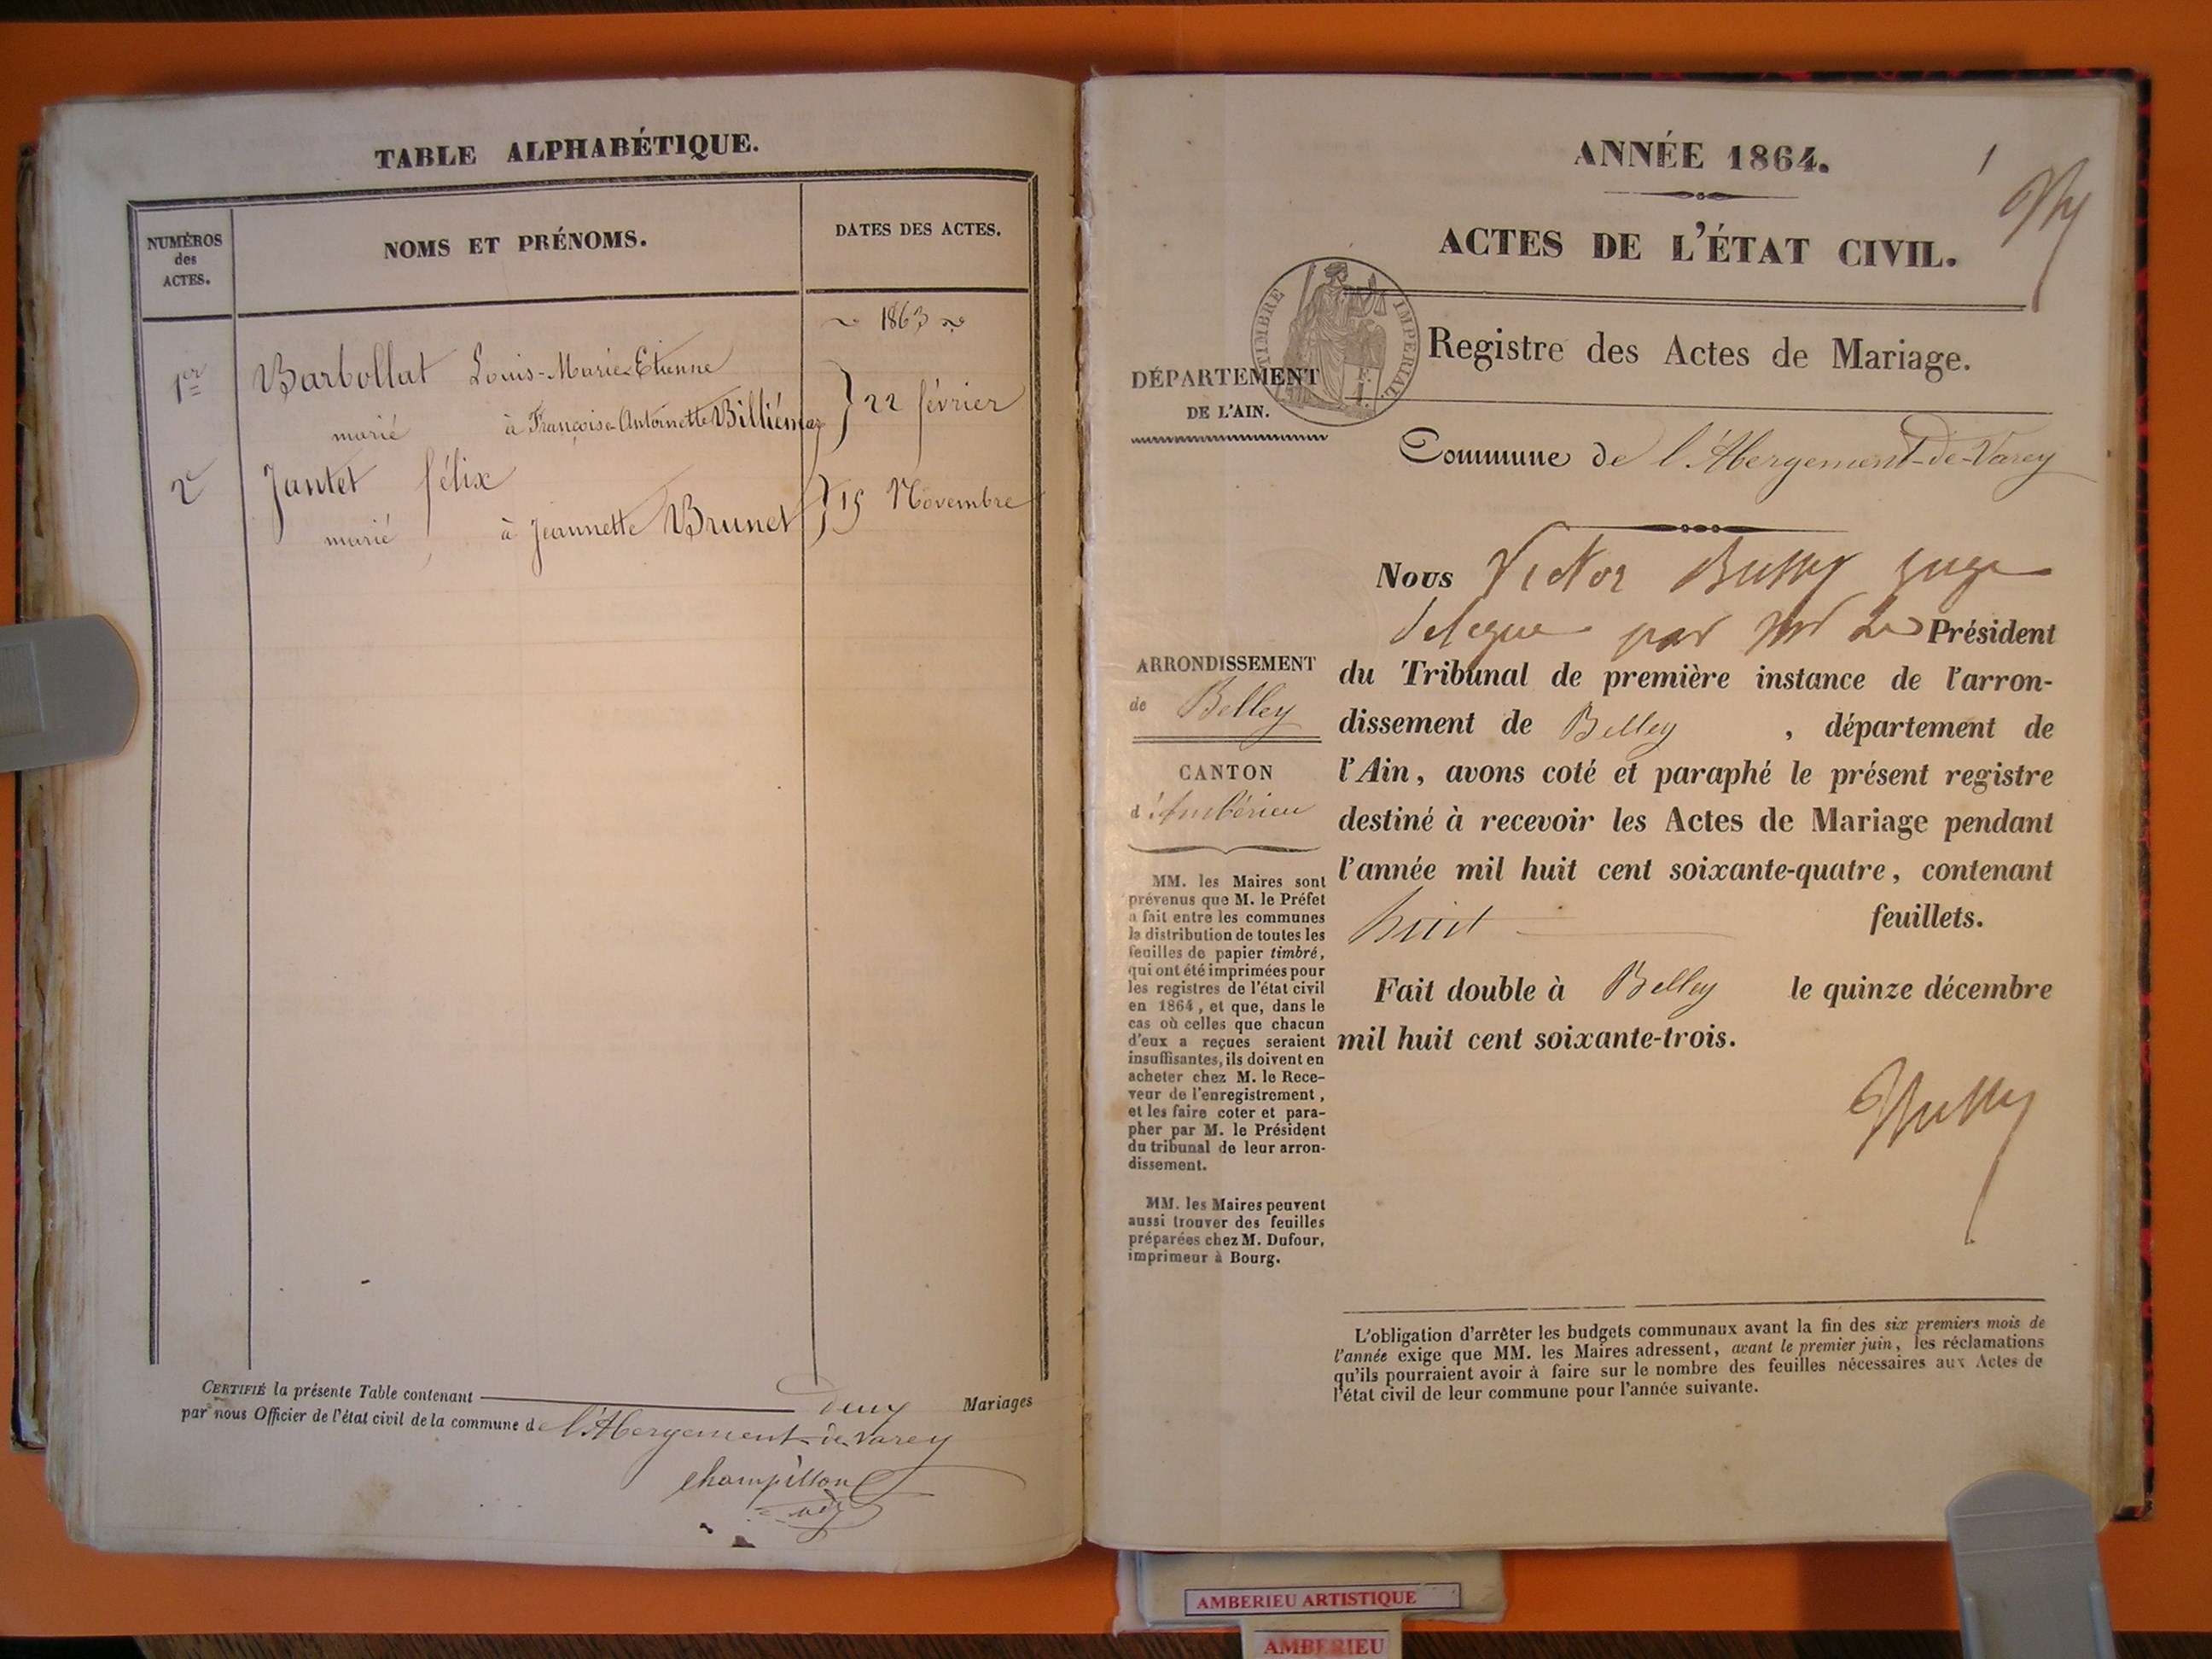 TABLE ALPHABÉTIQUE.
NUMÉROS
des
ACTES.
NOMS ET PRÉNOMS.
DATES DES ACTES.
~ 1863 ~
1er Barbollat Louis-Marie-Etienne
marié à Françoise-Antoinette Billiémaz } 22 février
2e Jantet félix
marié à Jeannette Brunet } 15 Novembre
CERTIFIÉ la présente Table contenant deux Mariages
par nous Officier de l'état civil de la commune de l'Abergement-de-Varey
Champillon
adj
ANNÉE 1864.
1
ACTES DE L'ÉTAT CIVIL.
TIMBRE IMPÉRIAL
DÉPARTEMENT
DE L'AIN.
Registre des Actes de Mariage.
Commune de l'Abergement-de-Varey
ARRONDISSEMENT
de Belley
CANTON
d'Ambérieu
MM. les Maires sont
prévenus que M. le Préfet
a fait entre les communes
la distribution de toutes les
feuilles de papier timbré,
qui ont été imprimées pour
les registres de l'état civil
en 1864, et que, dans le
cas où celles que chacun
d'eux a reçues seraient
insuffisantes, ils doivent en
acheter chez M. le Rece-
veur de l'enregistrement,
et les faire coter et para-
pher par M. le Président
du tribunal de leur arron-
dissement.
MM. les Maires peuvent
aussi trouver des feuilles
préparées chez M. Dufour,
imprimeur à Bourg.
Nous Victor Bussy juge
delegue par Mr Le Président
du Tribunal de première instance de l'arron-
dissement de Belley , département de
l'Ain, avons coté et paraphé le présent registre
destiné à recevoir les Actes de Mariage pendant
l'année mil huit cent soixante-quatre, contenant
huit feuillets.
Fait double à Belley le quinze décembre
mil huit cent soixante-trois.
Bussy
L'obligation d'arrêter les budgets communaux avant la fin des six premiers mois de
l'année exige que MM. les Maires adressent, avant le premier juin, les réclamations
qu'ils pourraient avoir à faire sur le nombre des feuilles nécessaires aux Actes de
l'état civil de leur commune pour l'année suivante.
AMBERIEU ARTISTIQUE
AMBERIEU